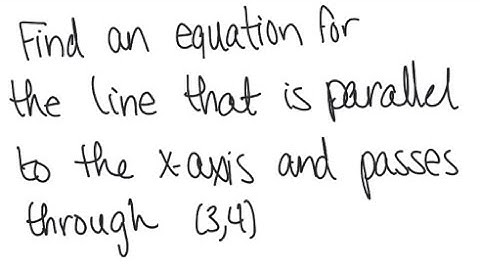 Find an equation for
the line that is parallel
to the x-axis and passes
through (3,4)